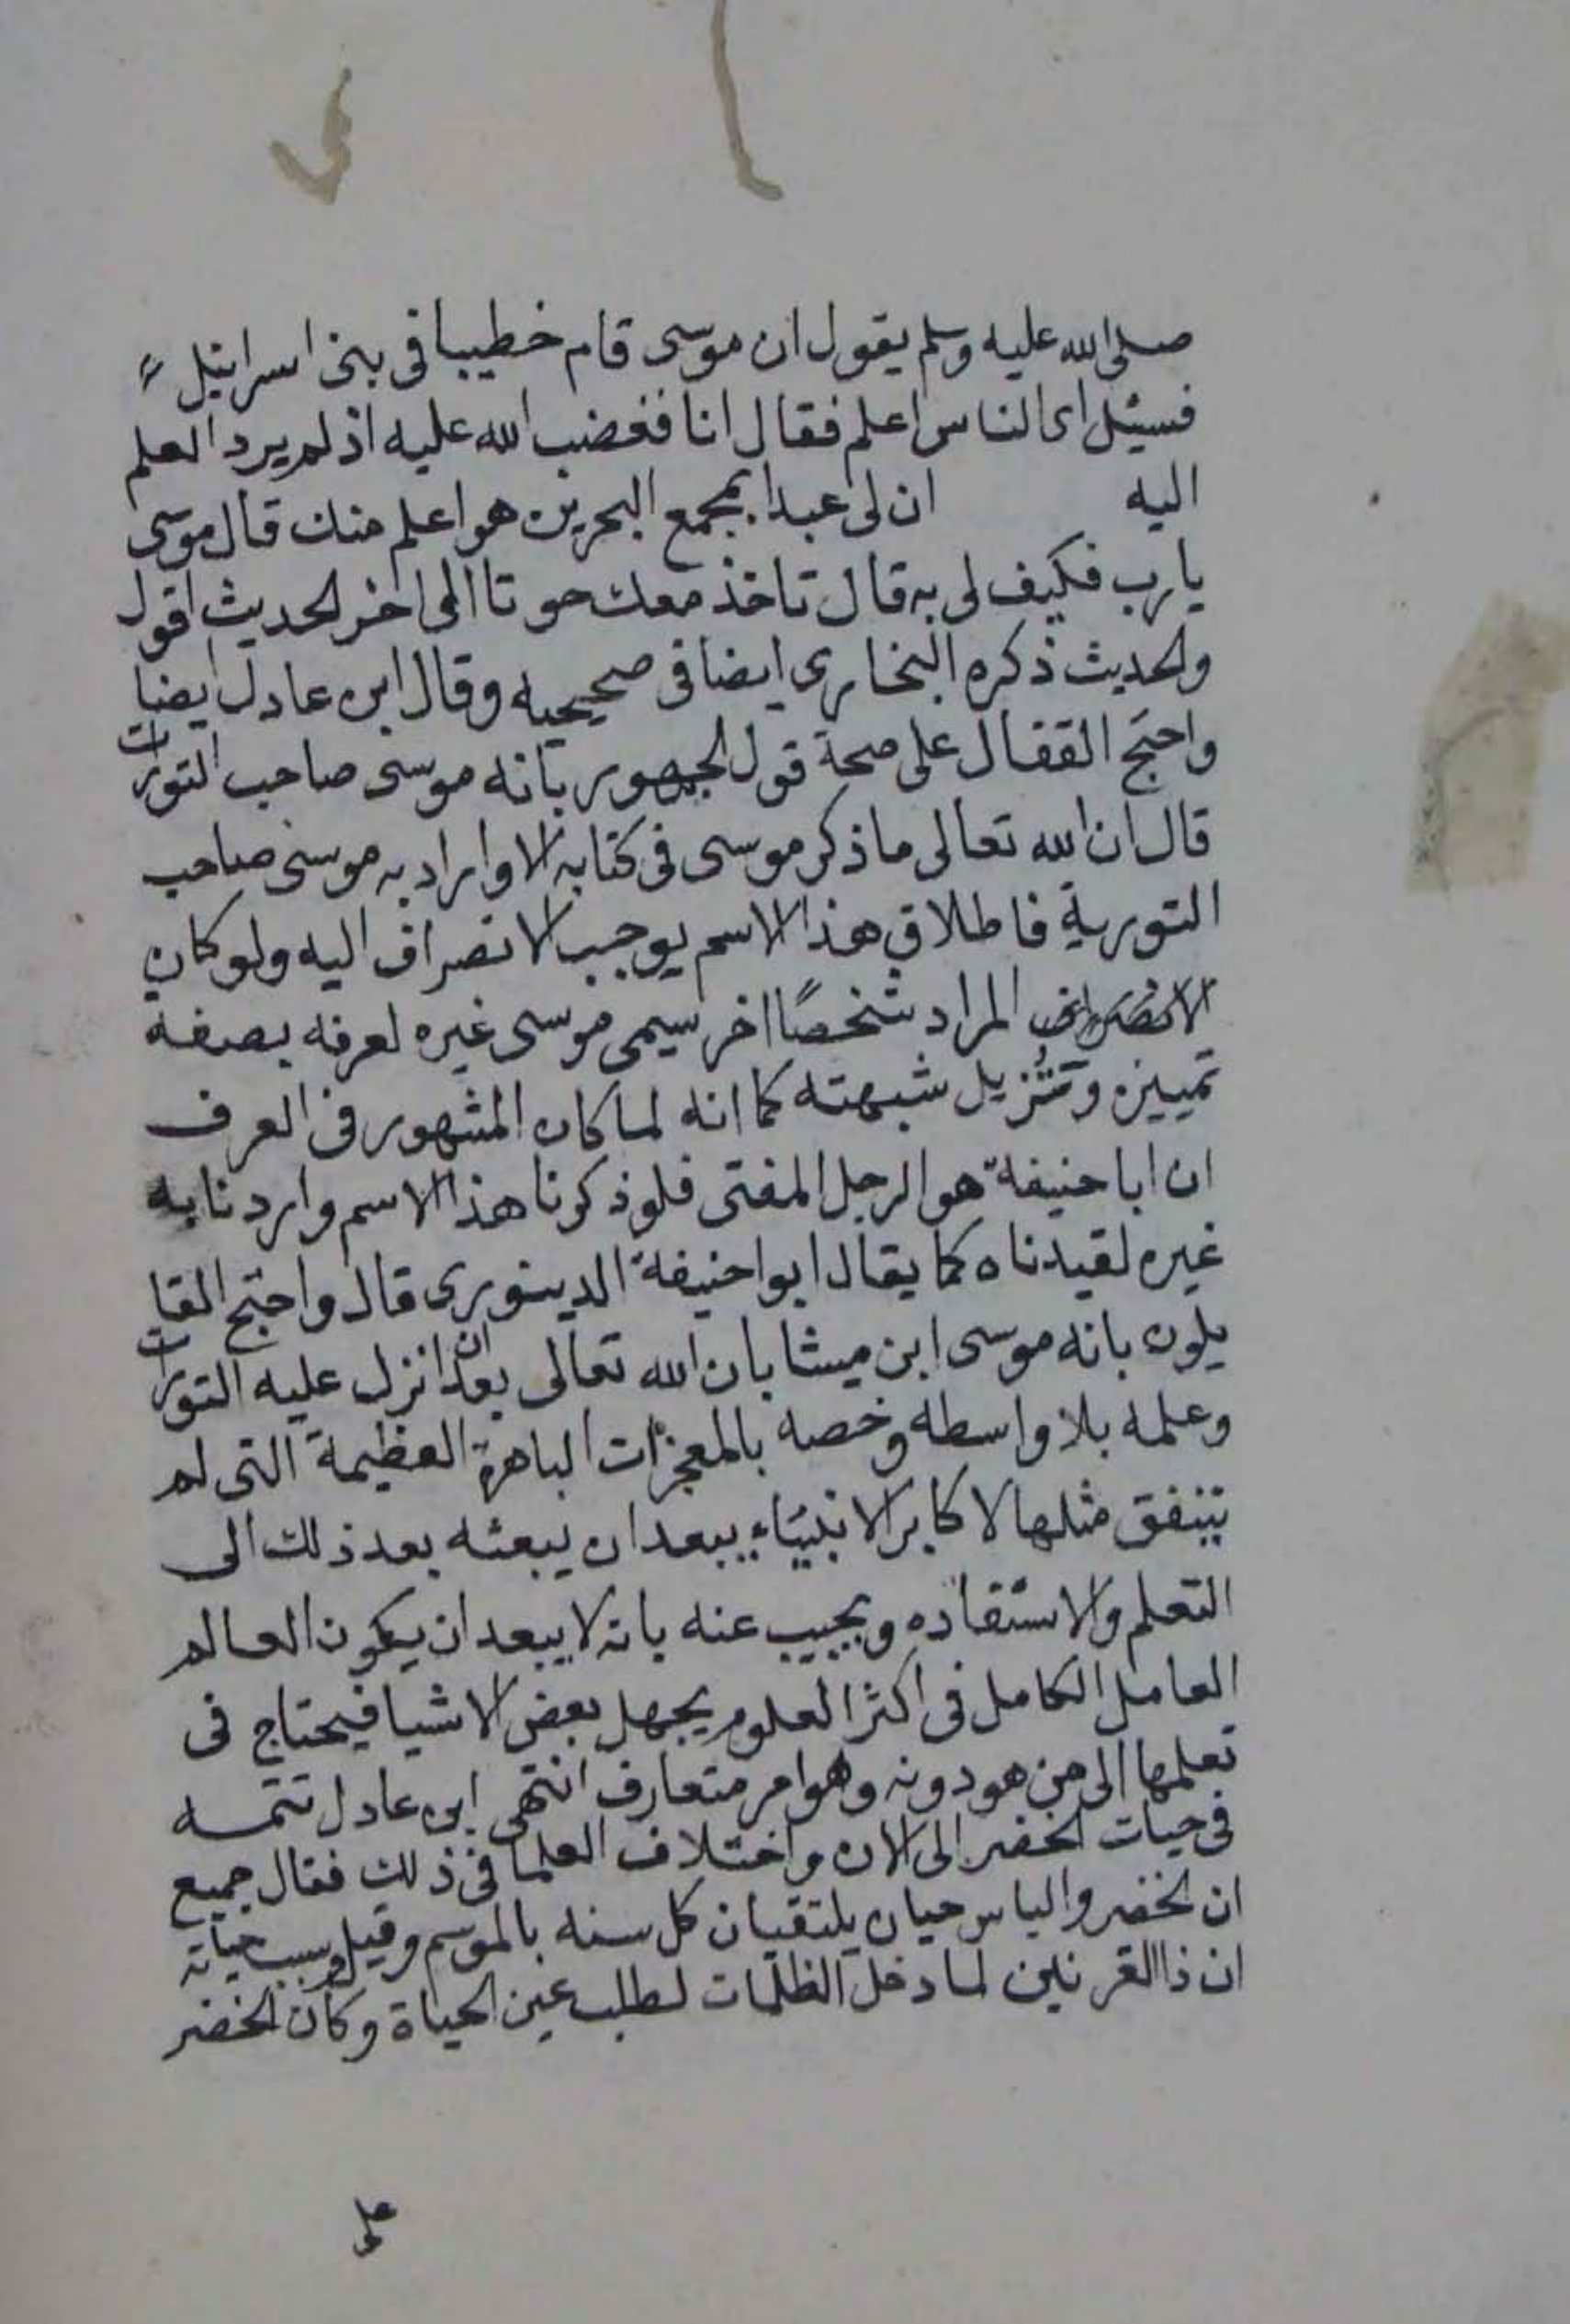 صلى الله عليه وسلم يقول ان موسى قام خطيبا في بني اسرائيل
فسيئل اى الناس اعلم فقال انا فغضب الله عليه اذ لم يرد العلم
اليه ان لى عبدا بمجمع البحرين هو اعلم منك قال موسى
يا رب فكيف لى به قال تاخذ معك حوتا الى اخر الحديث اقول
والحديث ذكره البخارى ايضا فى صحيحيه وقال ابن عادل ايضا
واحتج القفال على صحة قول الجمهور بانه موسى صاحب التورات
قال ان الله تعالى ما ذكر موسى فى كتابه الا واراد به موسى صاحب
التورية فاطلاق هذا الاسم يوجب الانصراف اليه ولو كان
المراد شخصًا اخر سيمى موسى غيره لعرفه بصفة
تمييزه وتزيل شبهته كما انه لما كان المشهور فى العرف
ان ابا حنيفة هو الرجل المفتى فلو ذكرنا هذا الاسم واردنا به
غيره لقيدناه كما يقال ابوا حنيفة الدينورى قال واحتج القا
يلون بانه موسى ابن ميشا بان الله تعالى بعد ان انزل عليه التورات
وعلمه بلا واسطه وخصه بالمعجزات الباهرة العظيمة التى لم
يتنفق مثلها لاكابر الانبياء يبعد ان يبعثه بعد ذلك الى
التعلم والاستفاده ويجيب عنه بانه لا يبعد ان يكون العالم
العامل الكامل فى اكثر العلوم يجهل بعض الاشيا فيحتاج فى
تعلمها الى من هو دونه وهو امر متعارف انتهى ابن عادل تتمه
فى حيات الخضر الى الان واختلاف العلما فى ذلك فقال جميع
ان الخضر والياس حيان يلتقيان كل سنه بالموسم وقيل وسبب حياته
ان ذا القرنين لما دخل الظلمات لطلب عين الحياة وكان الخضر
على